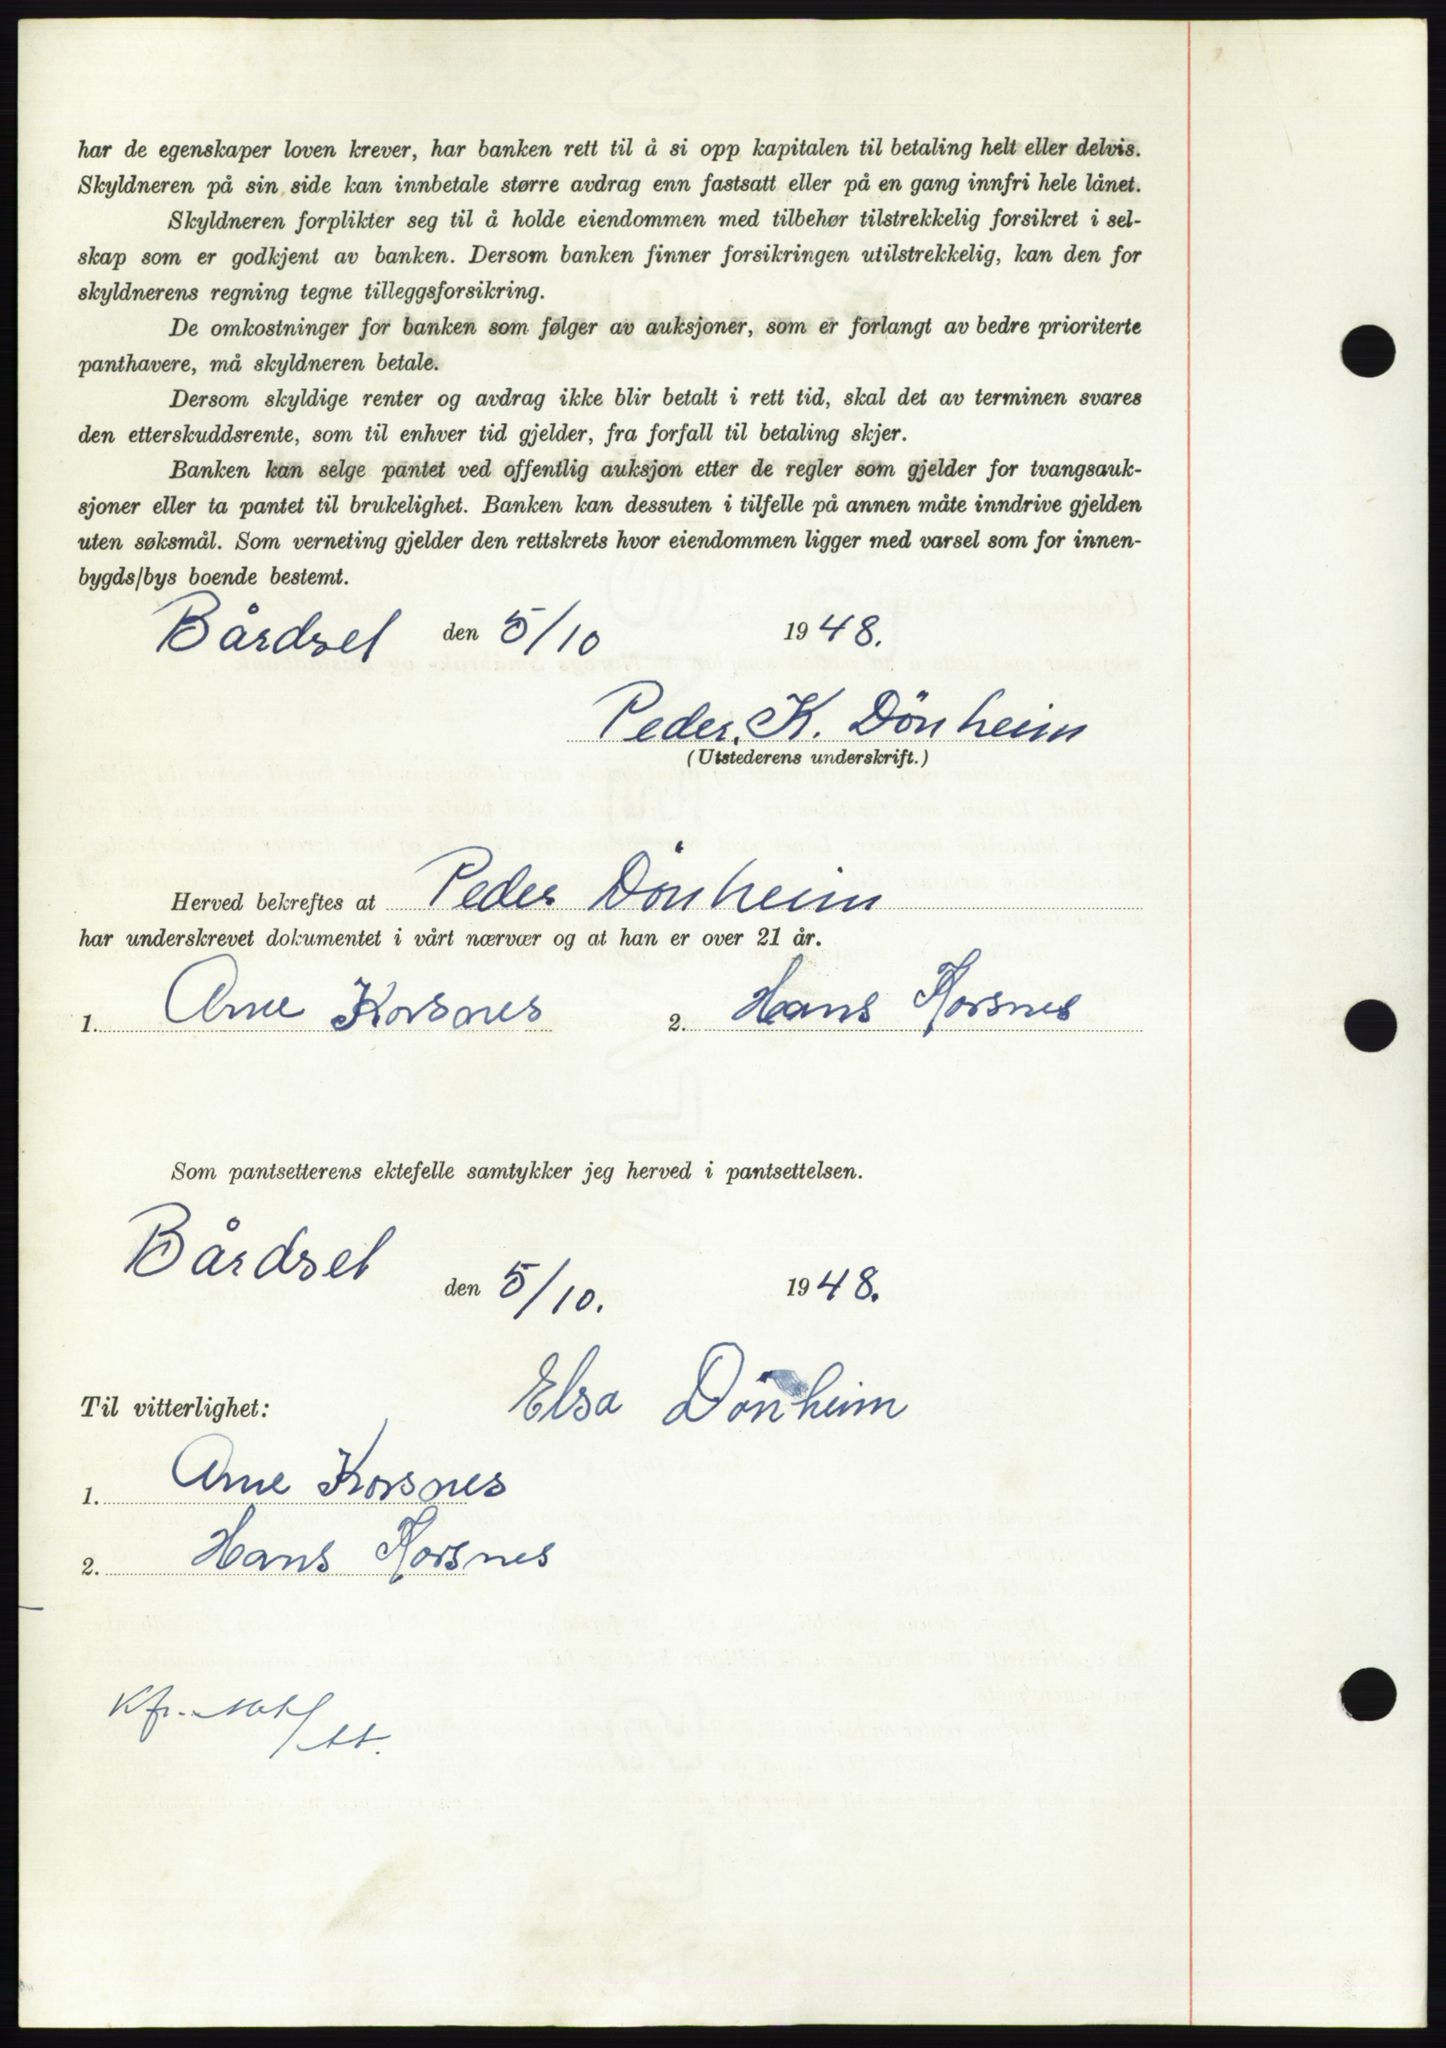 har de egenskaper loven krever, har banken rett til å si opp kapitalen til betaling helt eller delvis.
Skyldneren på sin side kan innbetale større avdrag enn fastsatt eller på en gang innfri hele lånet.
Skyldneren forplikter seg til å holde eiendommen med tilbehør tilstrekkelig forsikret i sel-
skap som er godkjent av banken. Dersom banken finner forsikringen utilstrekkelig, kan den for
skyldnerens regning tegne tilleggsforsikring.
De omkostninger for banken som følger av auksjoner, som er forlangt av bedre prioriterte
panthavere, må skyldneren betale.
Dersom skyldige renter og avdrag ikke blir betalt i rett tid, skal det av terminen svares
den etterskuddsrente, som til enhver tid gjelder, fra forfall til betaling skjer.
Banken kan selge pantet ved offentlig auksjon etter de regler som gjelder for tvangsauk-
sjoner eller ta pantet til brukelighet. Banken kan dessuten i tilfelle på annen måte inndrive gjelden
uten søksmål. Som verneting gjelder den rettskrets hvor eiendommen ligger med varsel som for innen-
bygds/bys boende bestemt.
Bårdset den 5/10 1948.
Peder. K. Dönheim
(Utstederens underskrift.)
Herved bekreftes at Peder Dönheim
har underskrevet dokumentet i vårt nærvær og at han er over 21 år.
1. Arne Korsnes 2. Hans Korsnes
Som pantsetterens ektefelle samtykker jeg herved i pantsettelsen.
Bårdset den 5/10. 1948.
Elsa Dönheim
Til vitterlighet:
1. Arne Korsnes
2. Hans Korsnes
Kfr.